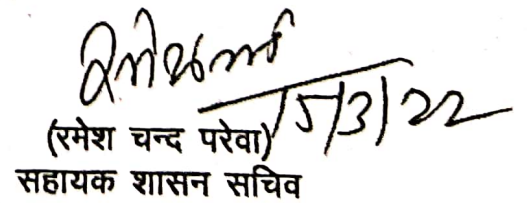 15/3/22
(रमेश चन्द परेवा)
सहायक शासन सचिव